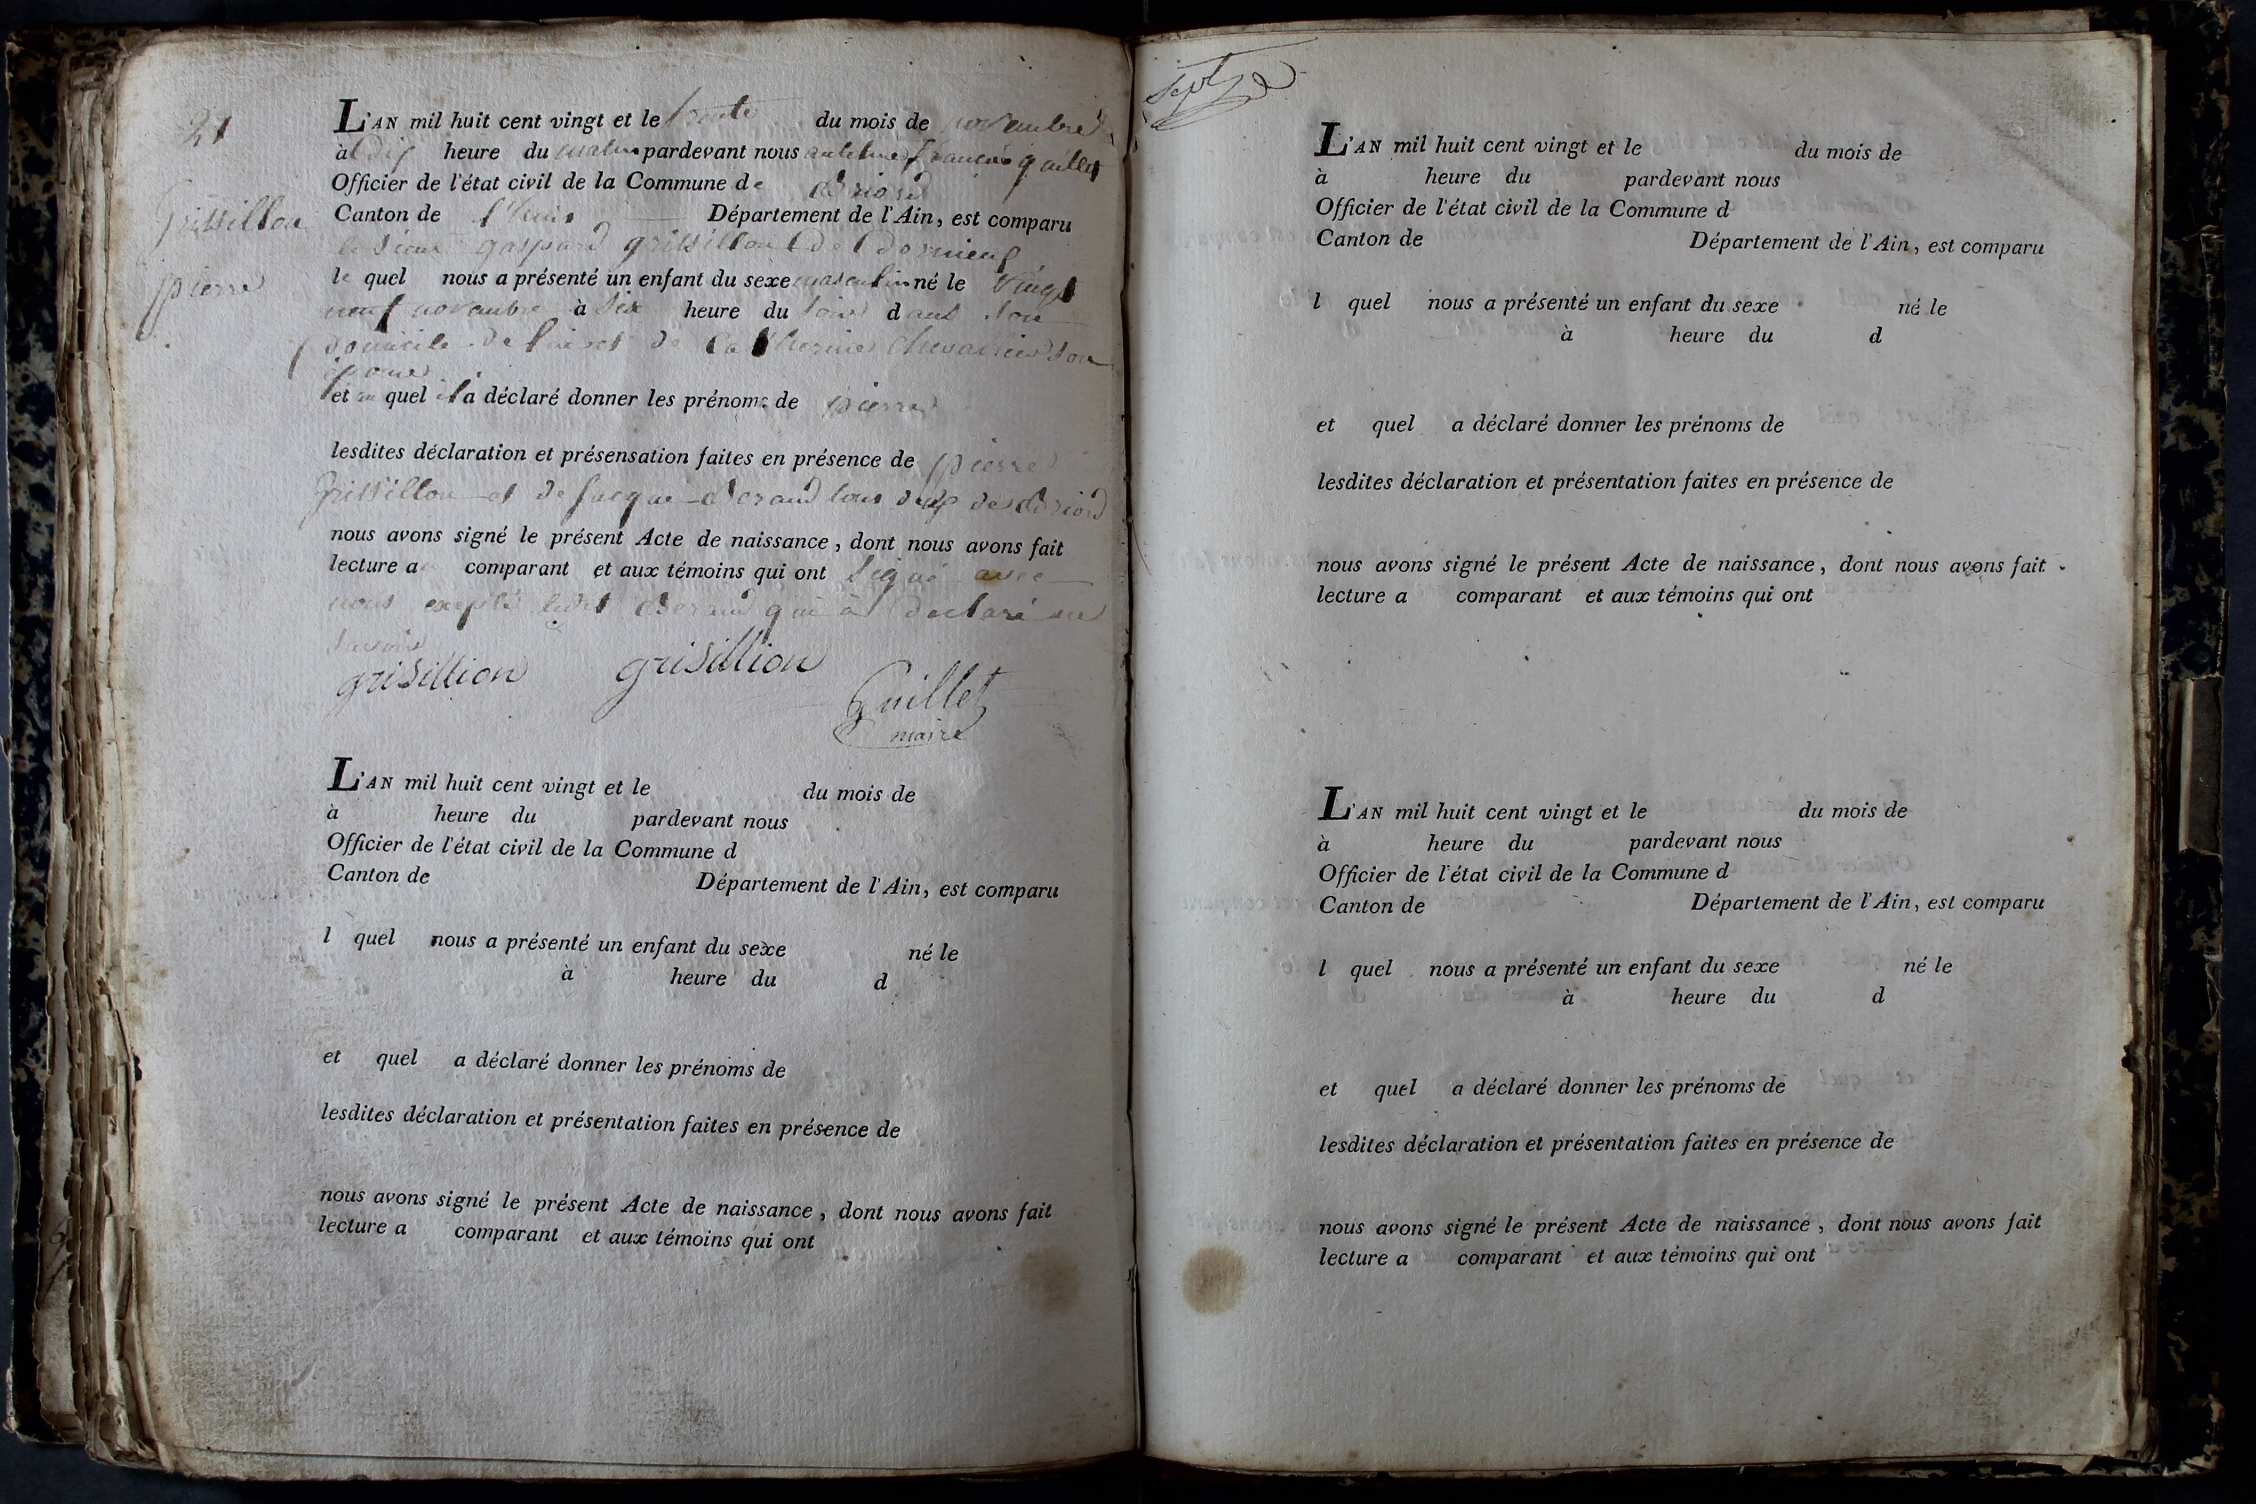 21
L'AN mil huit cent vingt et le trente du mois de novembre
à dix heure du matin pardevant nous antelme francois quillet
Officier de l'état civil de la Commune de Briord
Canton de l'huis Département de l'Ain, est comparu
Grissillon
le sieur gaspard grissillon de dornieux
pierre
le quel nous a présenté un enfant du sexe masculin né le vingt
neuf novembre à six heure du soir dans son
domicile de lui et de Catherine Chevallier son
épouse
et au quel il a déclaré donner les prénoms de pierre
lesdites déclaration et présensation faites en présence de pierre
Grissillon et de Jacque Berand tous deux de Briord
nous avons signé le présent Acte de naissance, dont nous avons fait
lecture a comparant et aux témoins qui ont Signé avec
nous excepté ledit Berand qui à declaré ne
savoir
grisillion grisillion
Quillet
maire
L'AN mil huit cent vingt et le du mois de
à heure du pardevant nous
Officier de l'état civil de la Commune d
Canton de Département de l'Ain, est comparu
l quel nous a présenté un enfant du sexe né le
à heure du d
et quel a déclaré donner les prénoms de
lesdites déclaration et présentation faites en présence de
nous avons signé le présent Acte de naissance, dont nous avons fait
lecture a comparant et aux témoins qui ont
Sept
L'AN mil huit cent vingt et le du mois de
à heure du pardevant nous
Officier de l'état civil de la Commune d
Canton de Département de l'Ain, est comparu
l quel nous a présenté un enfant du sexe né le
à heure du d
et quel a déclaré donner les prénoms de
lesdites déclaration et présentation faites en présence de
nous avons signé le présent Acte de naissance, dont nous avons fait
lecture a comparant et aux témoins qui ont
L'AN mil huit cent vingt et le du mois de
à heure du pardevant nous
Officier de l'état civil de la Commune d
Canton de Département de l'Ain, est comparu
l quel nous a présenté un enfant du sexe né le
à heure du d
et quel a déclaré donner les prénoms de
lesdites déclaration et présentation faites en présence de
nous avons signé le présent Acte de naissance, dont nous avons fait
lecture a comparant et aux témoins qui ont